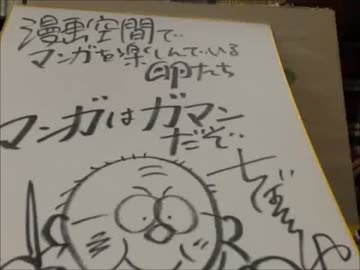 漫画空間で
マンガを楽しんでいる
卵たち
マンガはガマン
だぞ